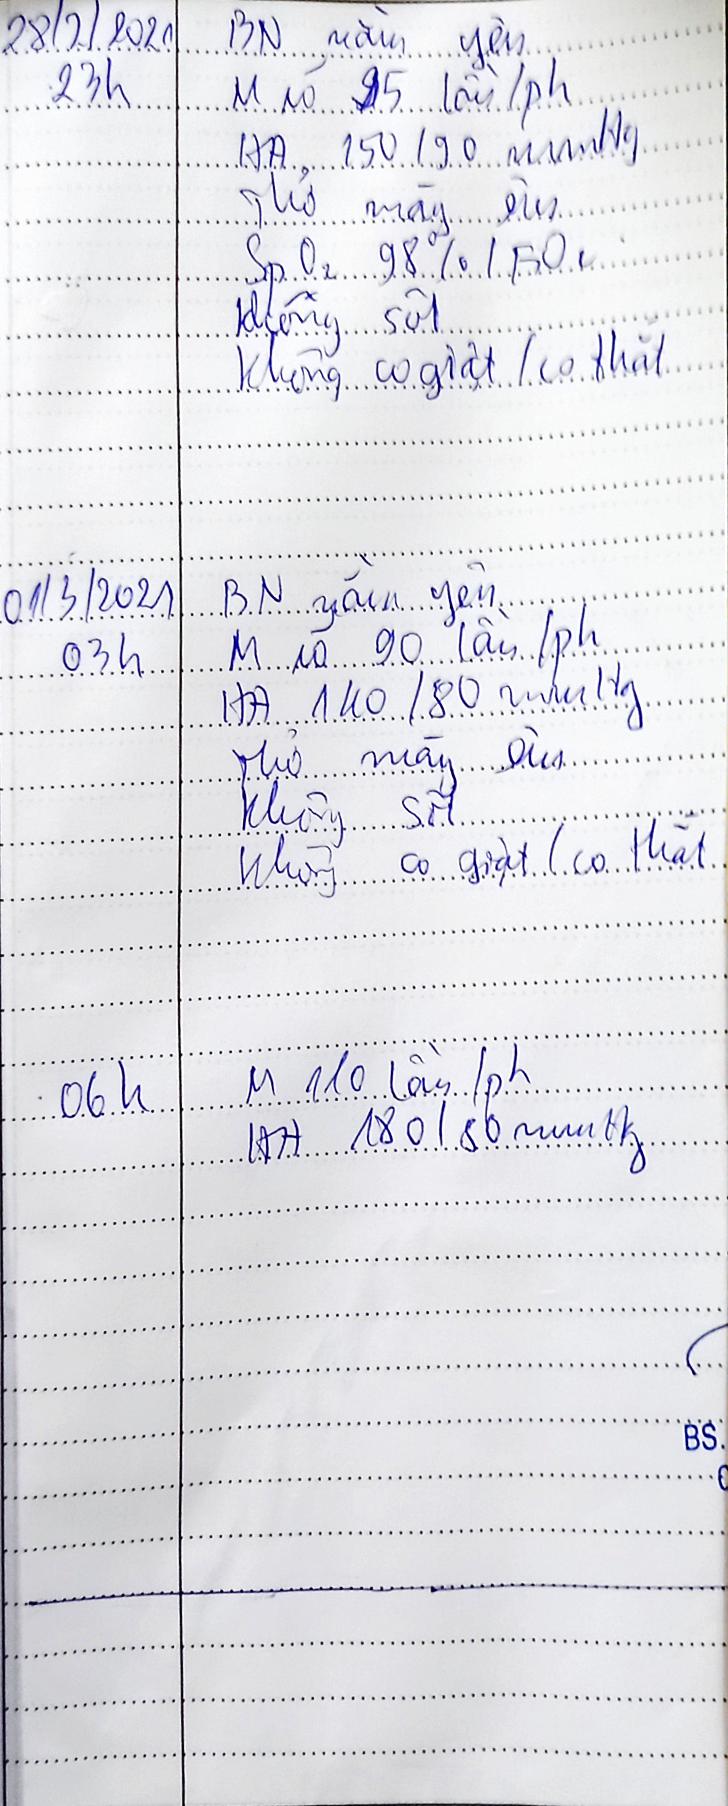 28/2/2021 BN nằm yên
23h M rõ 95 lần/ph
HA 150/90 mmHg
Thở máy êm
SpO2 98% / FiO2
Không sốt
Không co giật / co thắt
01/3/2021 BN nằm yên
03h M rõ 90 lần/ph
HA 140/80 mmHg
Thở máy êm
Không sốt
Không co giật / co thắt
06h M 110 lần/ph
HA 180/80 mmHg
BS.